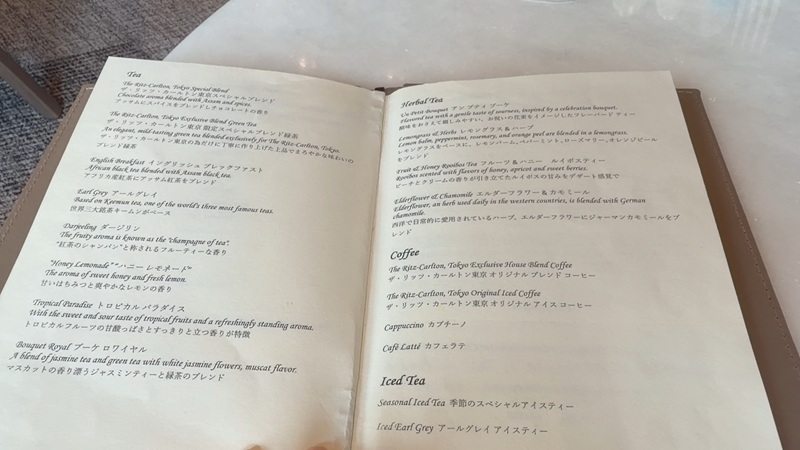 Tea
The Ritz-Carlton, Tokyo Special Blend
ザ・リッツ・カールトン東京スペシャルブレンド
Chocolate aroma blended with Assam and spices.
アッサムにスパイスをブレンドしチョコレートの香り
The Ritz-Carlton, Tokyo Exclusive Blend Green Tea
ザ・リッツ・カールトン東京 限定スペシャルブレンド緑茶
An elegant, mild-tasting green tea blended exclusively for The Ritz-Carlton, Tokyo.
ザ・リッツ・カールトン東京の為だけに丁寧に作り上げた上品でまろやかな味わいの
ブレンド緑茶
English Breakfast イングリッシュ ブレックファスト
African black tea blended with Assam black tea.
アフリカ産紅茶にアッサム紅茶をブレンド
Earl Grey アールグレイ
Based on Keemun tea, one of the world's three most famous teas.
世界三大銘茶キームンがベース
Darjeeling ダージリン
The fruity aroma is known as the "champagne of tea".
"紅茶のシャンパン"と称されるフルーティーな香り
"Honey Lemonade" "ハニー レモネード"
The aroma of sweet honey and fresh lemon.
甘いはちみつと爽やかなレモンの香り
Tropical Paradise トロピカル パラダイス
With the sweet and sour taste of tropical fruits and a refreshingly standing aroma.
トロピカルフルーツの甘酸っぱさとすっきりと立つ香りが特徴
Bouquet Royal ブーケ ロワイヤル
A blend of jasmine tea and green tea with white jasmine flowers, muscat flavor.
マスカットの香り漂うジャスミンティーと緑茶のブレンド
Herbal Tea
Un Petit Bouquet アン プティ ブーケ
Flavored tea with a gentle taste of sourness, inspired by a celebration bouquet.
酸味をおさえて親しみやすい、お祝いの花束をイメージしたフレーバード ティー
Lemongrass & Herbs レモングラス & ハーブ
Lemon balm, peppermint, rosemary, and orange peel are blended in a lemongrass.
レモングラスをベースに、レモンバーム、ペパーミント、ローズマリー、オレンジピール
をブレンド
Fruit & Honey Rooibos Tea フルーツ & ハニー ルイボスティー
Rooibos scented with flavors of honey, apricot and sweet berries.
ピーチとクリームの香りが引き立てたルイボスの甘みをデザート感覚で
Elderflower & Chamomile エルダーフラワー & カモミール
Elderflower, an herb used daily in the western countries, is blended with German
chamomile.
西洋で日常的に愛用されているハーブ、エルダーフラワーにジャーマンカモミールをブ
レンド
Coffee
The Ritz-Carlton, Tokyo Exclusive House Blend Coffee
ザ・リッツ・カールトン東京 オリジナル ブレンド コーヒー
The Ritz-Carlton, Tokyo Original Iced Coffee
ザ・リッツ・カールトン東京 オリジナル アイス コーヒー
Cappuccino カプチーノ
Café Latté カフェラテ
Iced Tea
Seasonal Iced Tea 季節のスペシャルアイスティー
Iced Earl Grey アールグレイ アイスティー